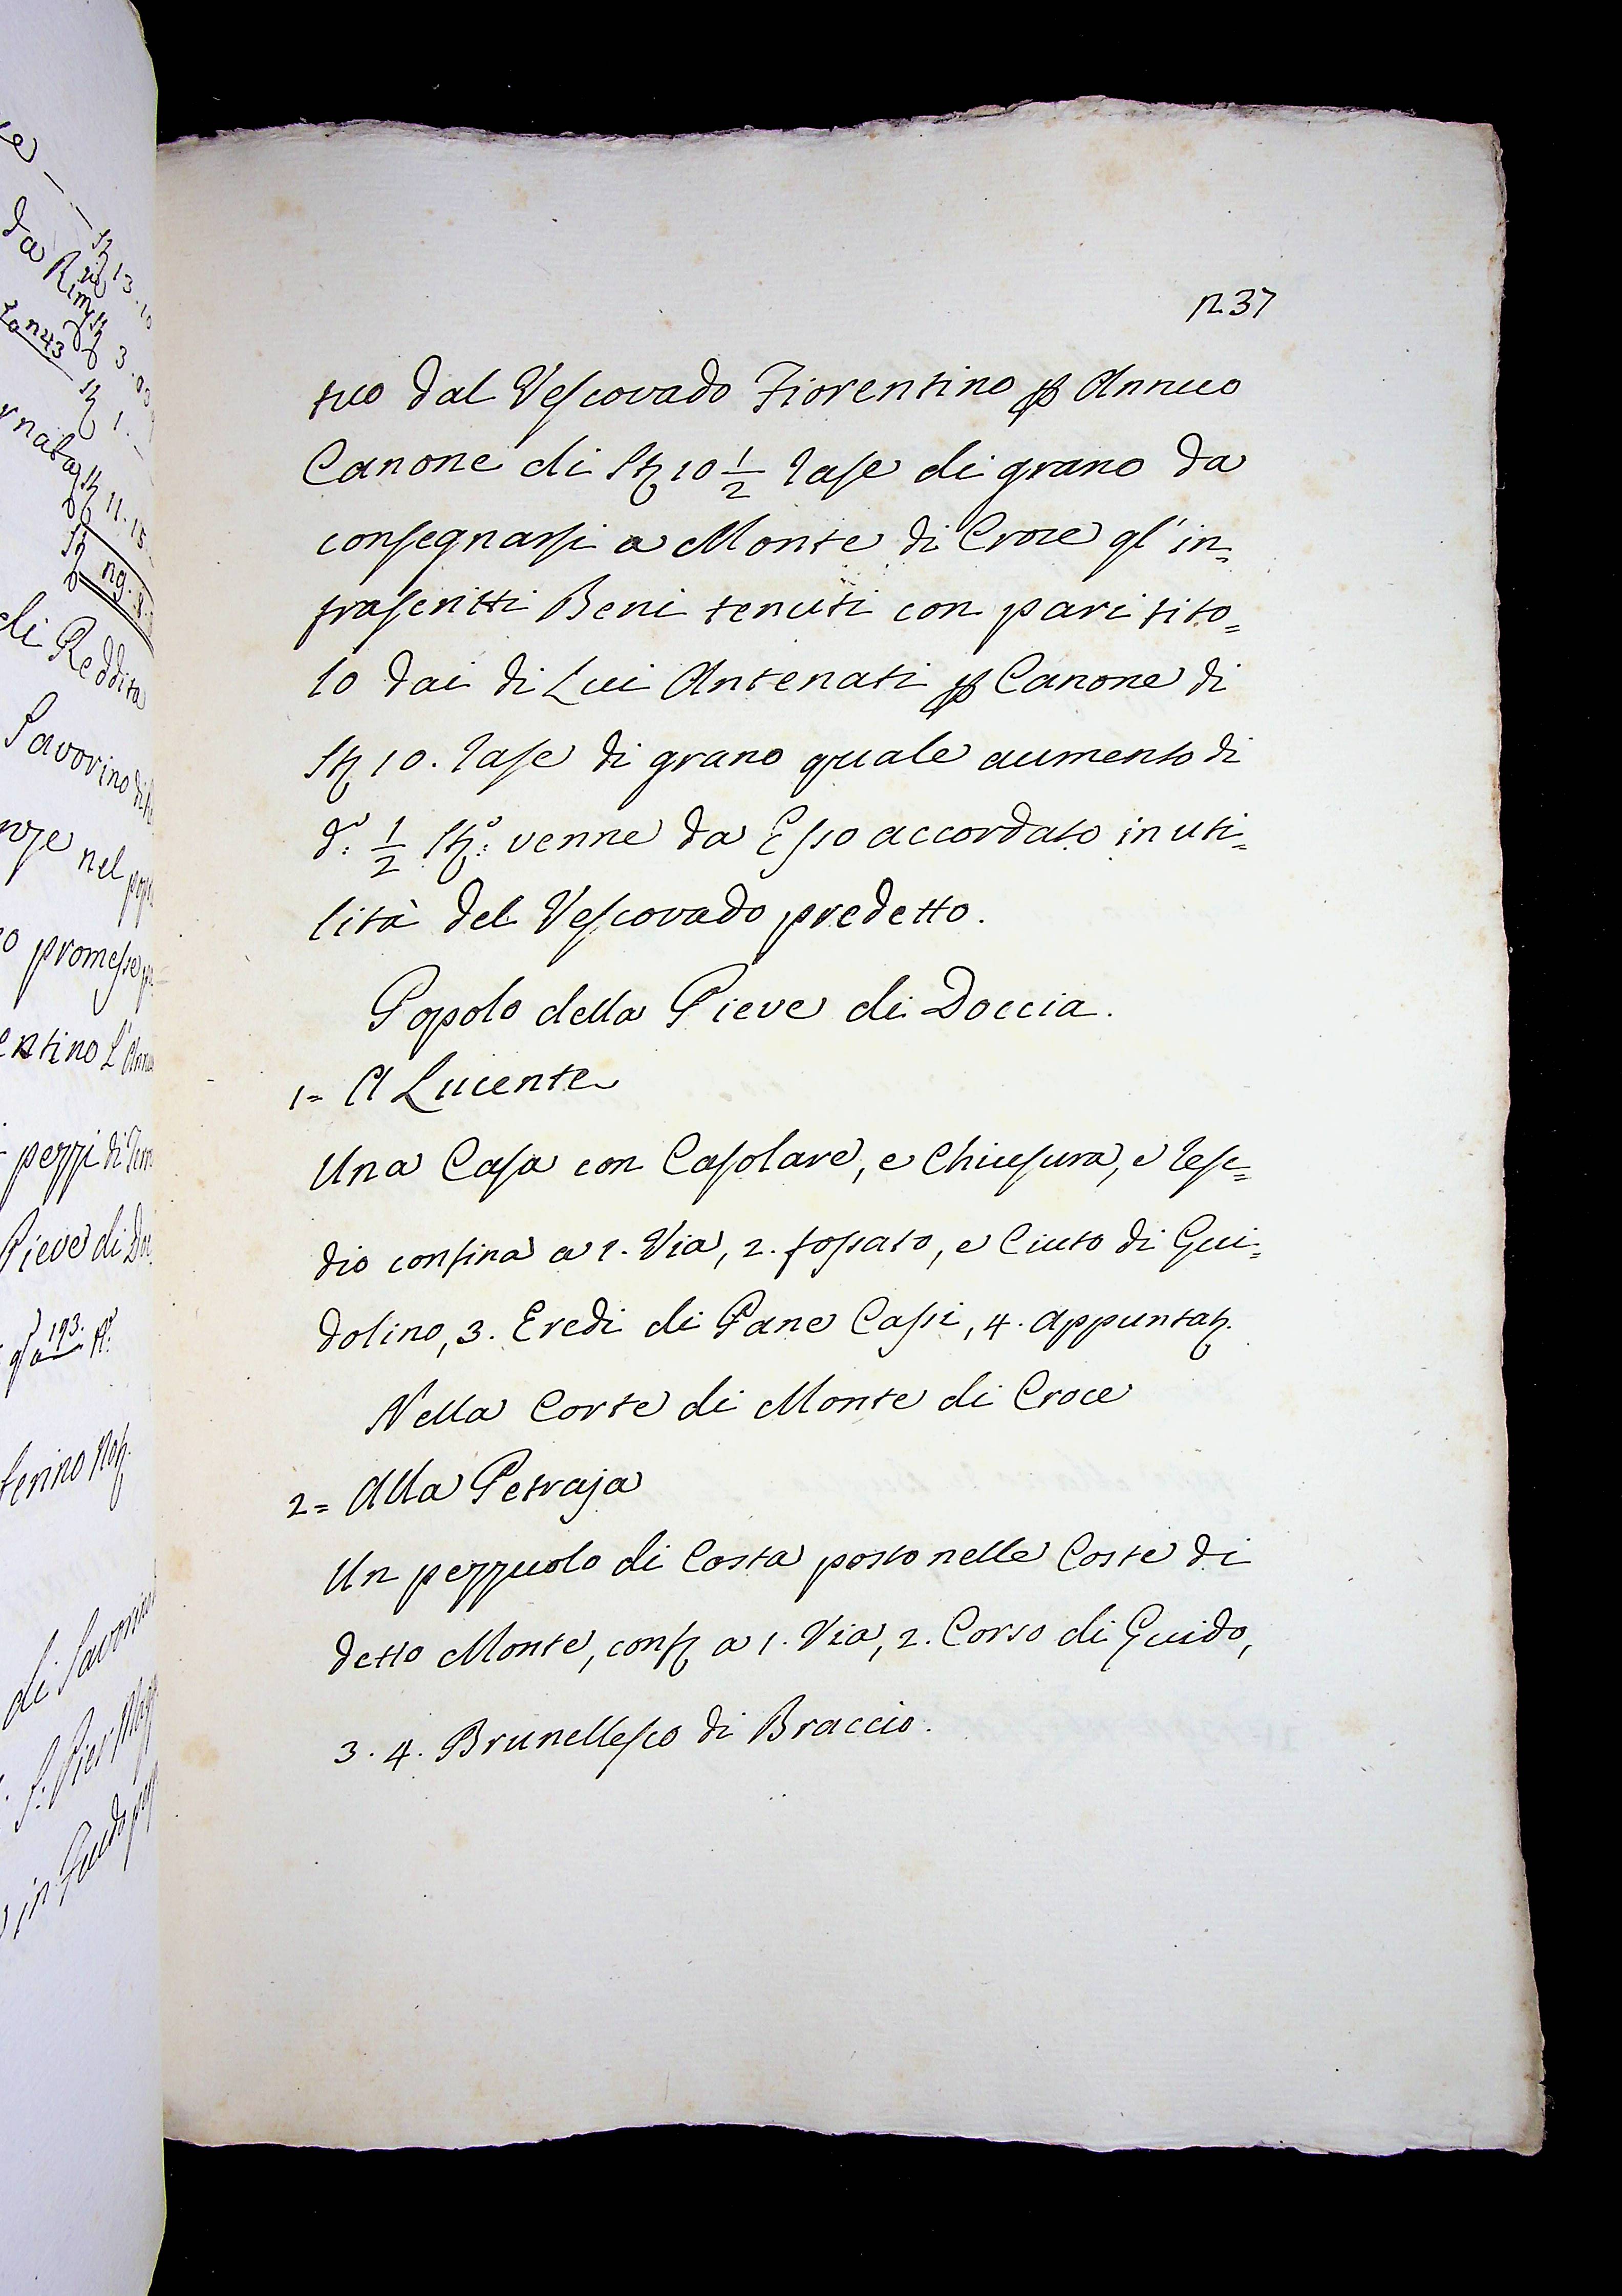 n 37
tuo dal Vescovado Fiorentino p Annuo
Canone di St 10 1/2 rase di grano da
consegnarsi a Monte di Croce gl'in=
frascritti Beni tenuti con pari tito=
lo dai di Lui Antenati p Canone di
St 10. rase di grano quale aumento di
d.º 1/2 St.º venne da Esso accordato in uti=
lità del Vescovado predetto.
Popolo della Pieve di Doccia.
1= A Lucente
Una Casa con Casolare, e Chiusura, e rese=
dio confina a 1. Via, 2. fossato, e Ciuto di Gui=
dolino, 3. Eredi di Pane Cassi, 4. appuntat.
Nella Corte di Monte di Croce
2= Alla Petraja
Un pezzuolo di Costa posto nelle Coste di
detto Monte, conf a 1. Via, 2. Corso di Guido,
3. 4. Brunellesco di Braccio.
da Rim
n 43
11. 15
di Reddita
Savorino di
nel
promesse
entino L'Annu
pezzi di Terr
Pieve di Doc
193.
di Savorino
S. Pier Mag
in Guido